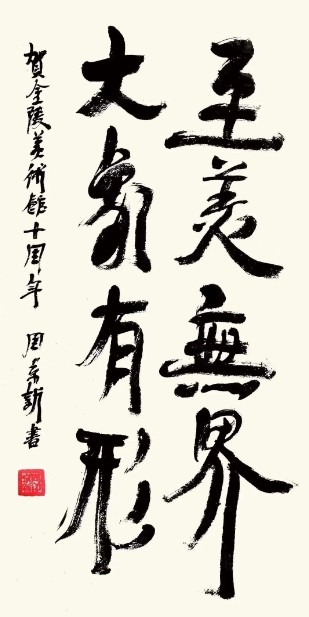 至美無界
大象有形
賀金陵美術館十周年 周京新書